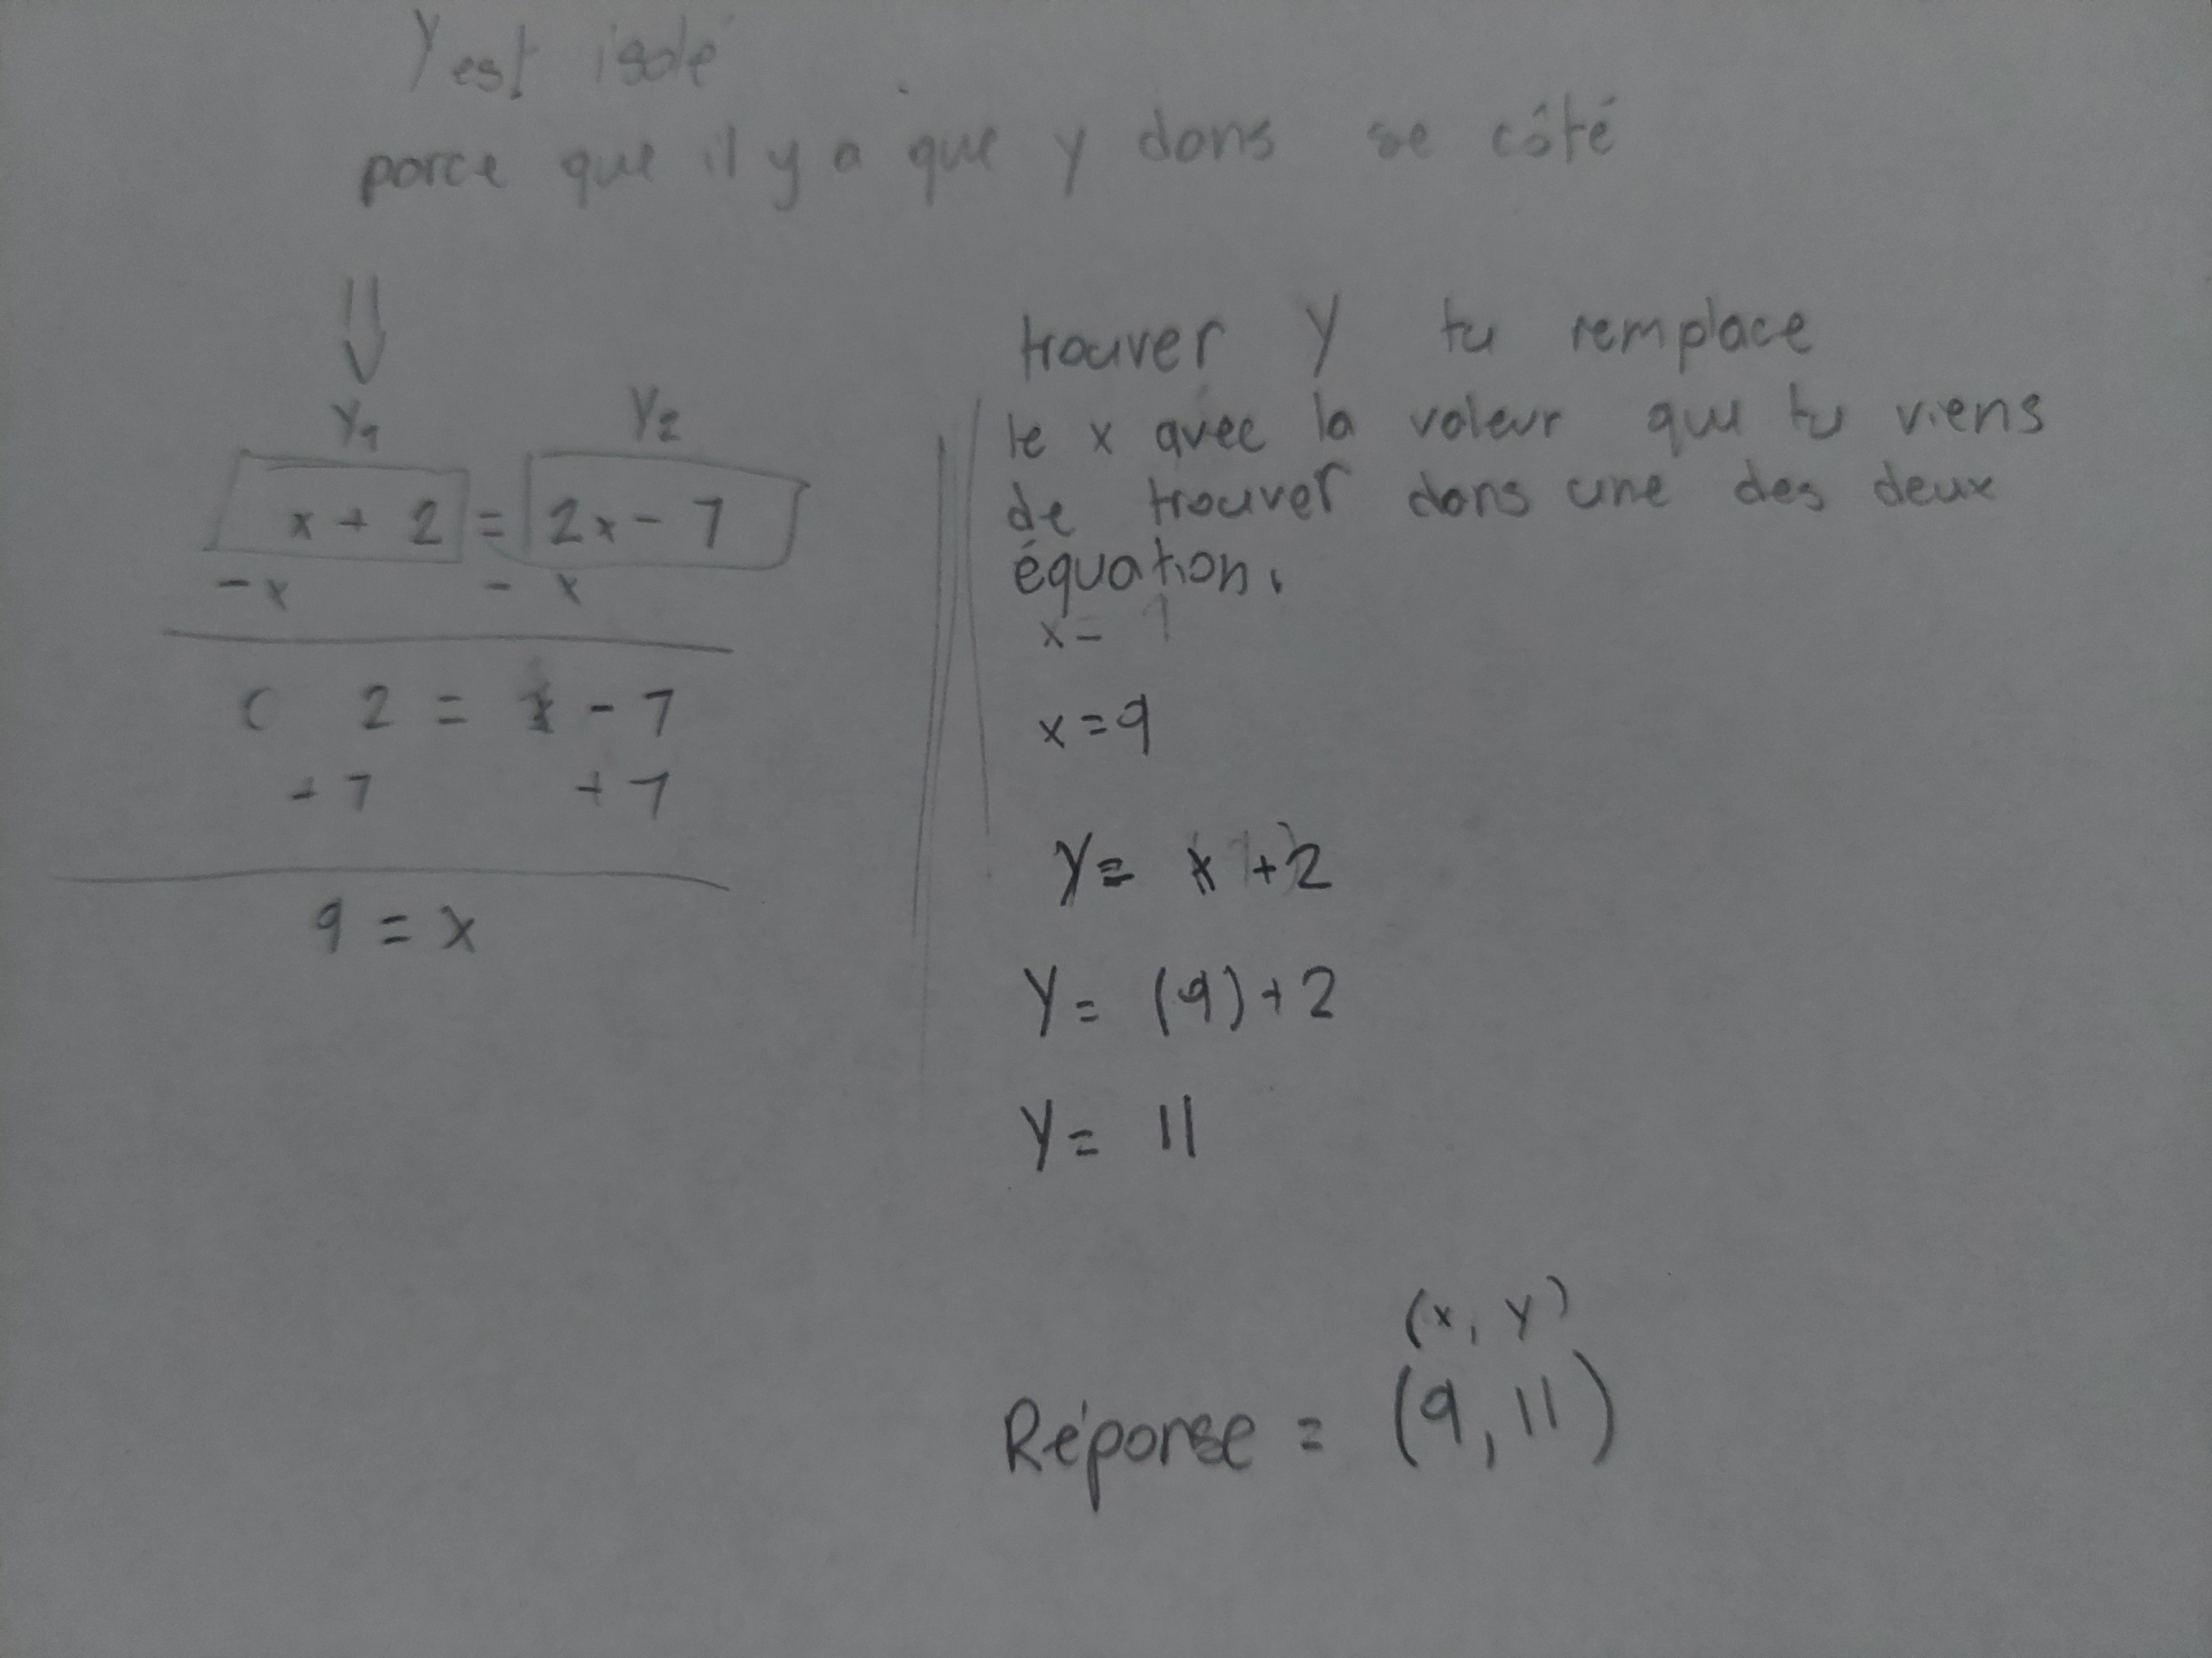 Y est isolé
parce que il y a que y dans se côté
Y1 Y2
x + 2 = 2x - 7
- x - x
2 = x - 7
+ 7 + 7
9 = x
trouver Y tu remplace
le x avec la valeur que tu viens
de trouver dans une des deux
équation.
x = 9
Y = x + 2
Y = (9) + 2
Y = 11
(x, y)
Réponse = (9, 11)